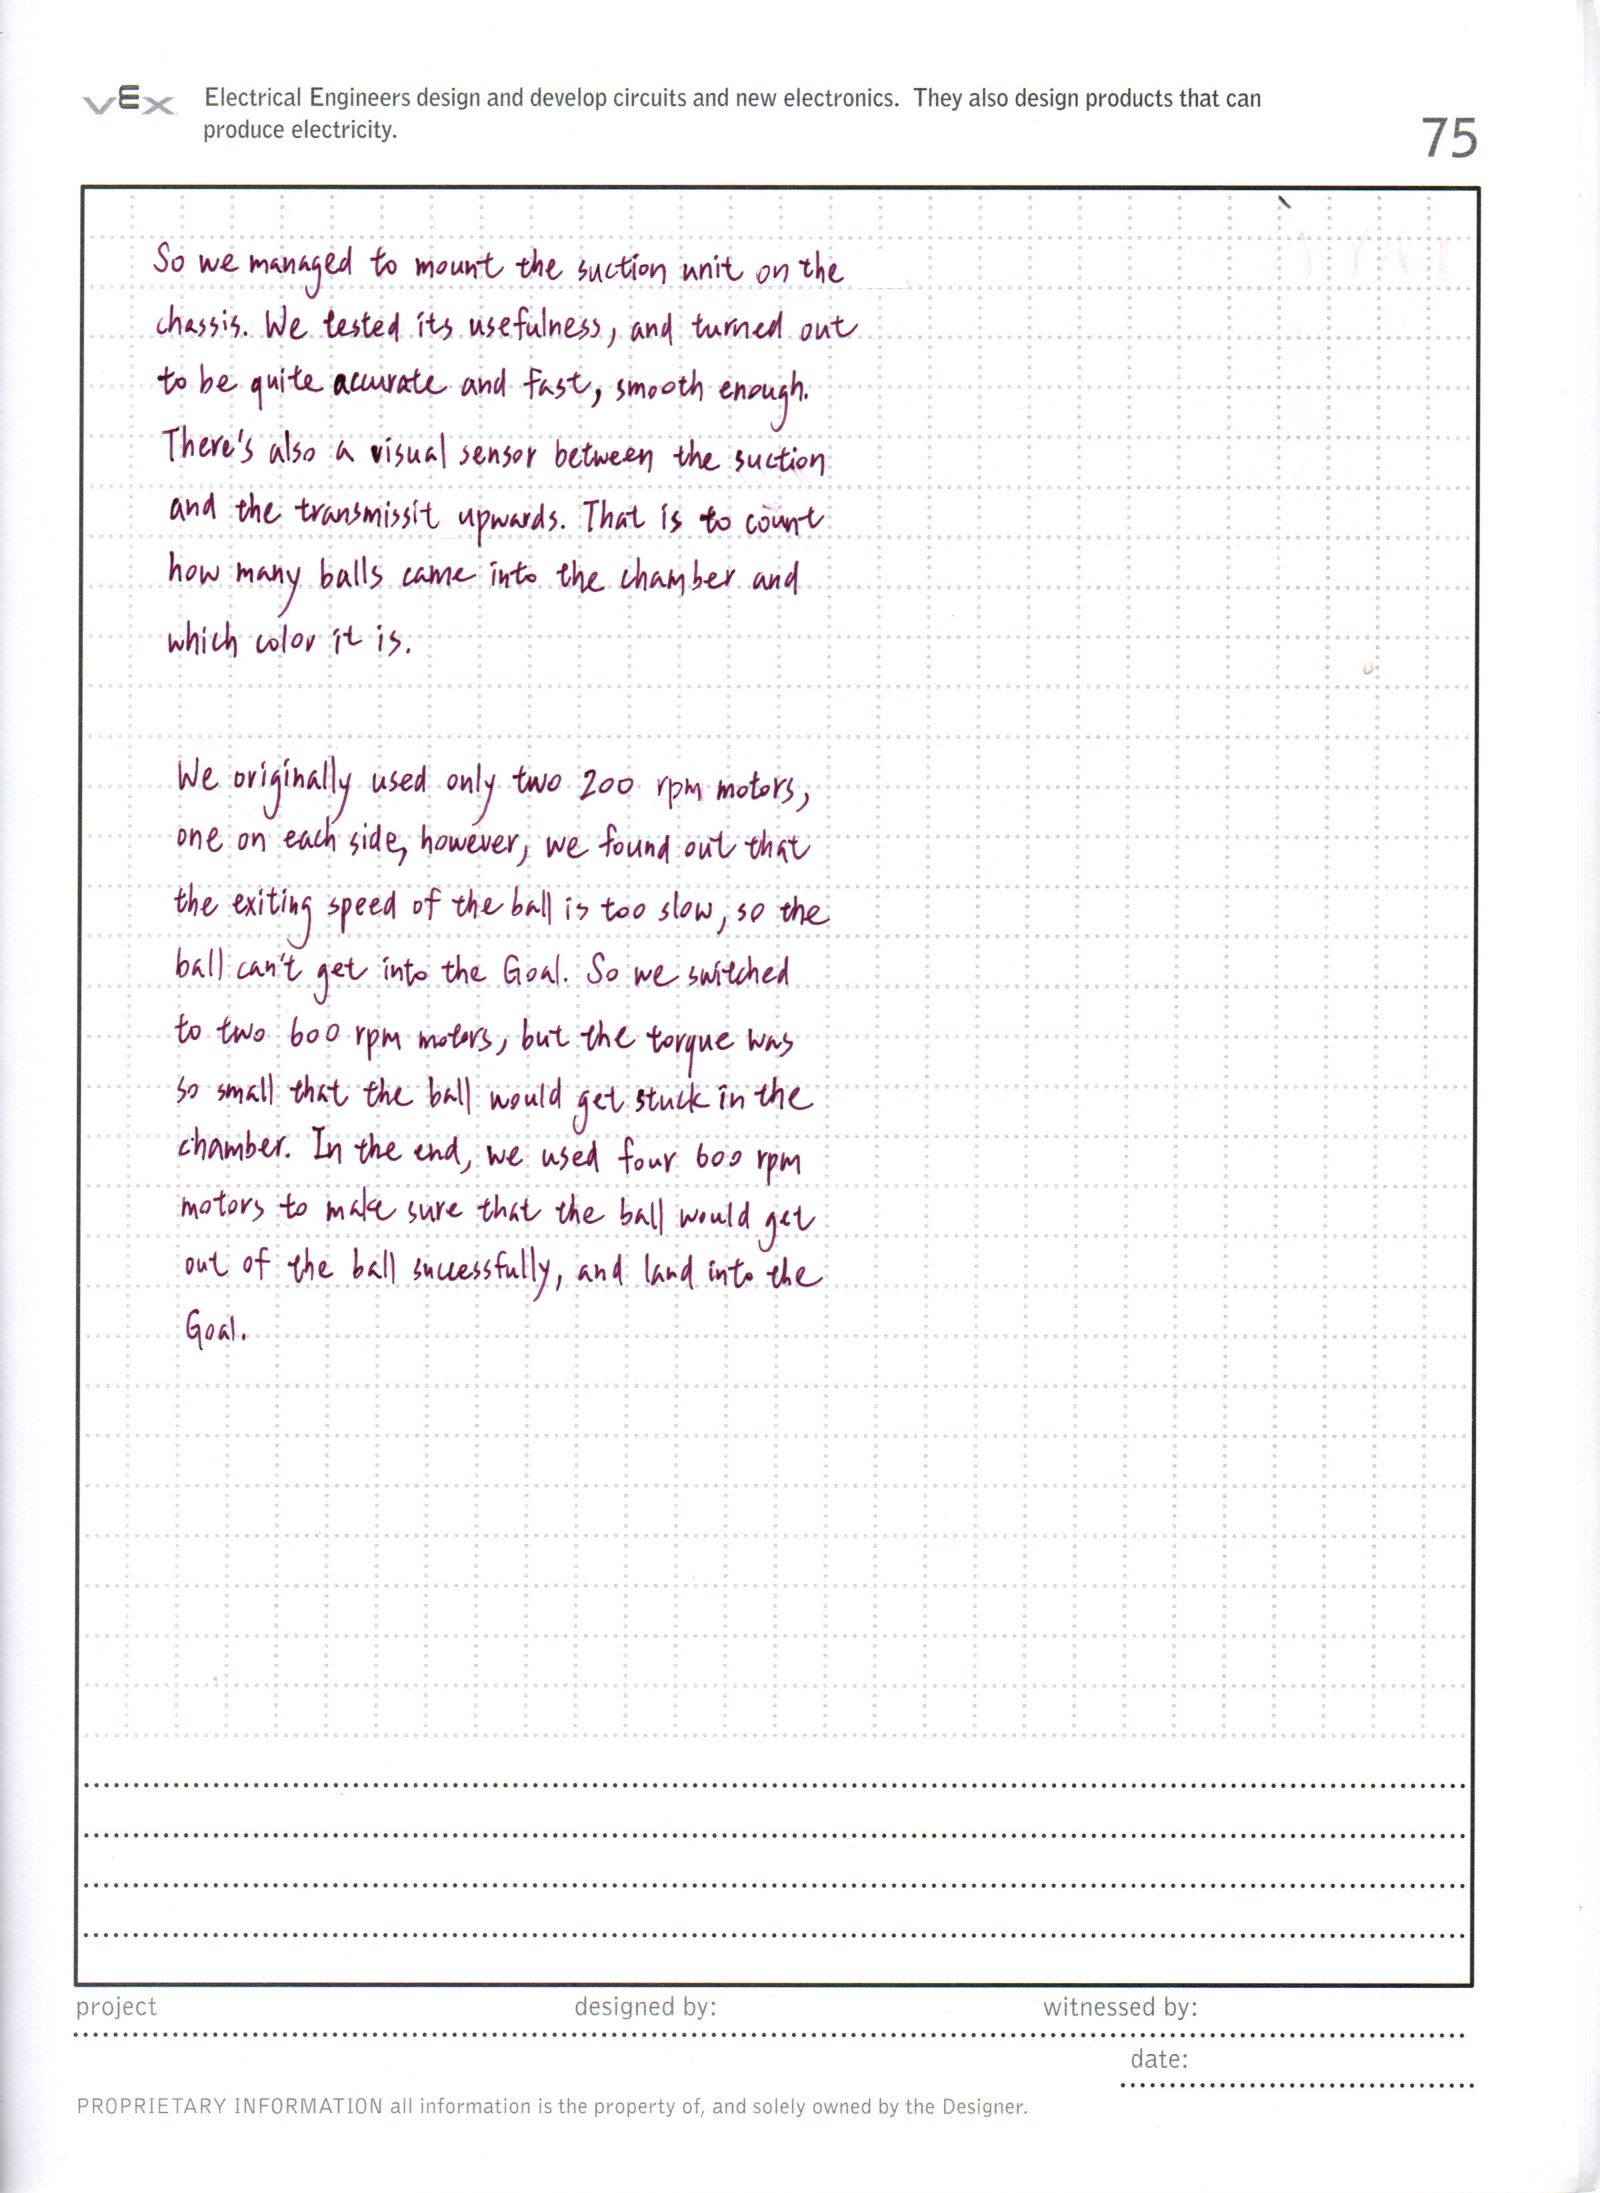 VEX
Electrical Engineers design and develop circuits and new electronics. They also design products that can
produce electricity.
75
So we managed to mount the suction unit on the
chassis. We tested its usefulness, and turned out
to be quite accurate and fast, smooth enough.
There's also a visual sensor between the suction
and the transmissit upwards. That is to count
how many balls came into the chamber and
which color it is.
We originally used only two 200 rpm motors,
one on each side, however, we found out that
the exiting speed of the ball is too slow, so the
ball can't get into the Goal. So we switched
to two 600 rpm motors, but the torque was
so small that the ball would get stuck in the
chamber. In the end, we used four 600 rpm
motors to make sure that the ball would get
out of the ball successfully, and land into the
Goal.
project designed by: witnessed by:
date:
PROPRIETARY INFORMATION all information is the property of, and solely owned by the Designer.